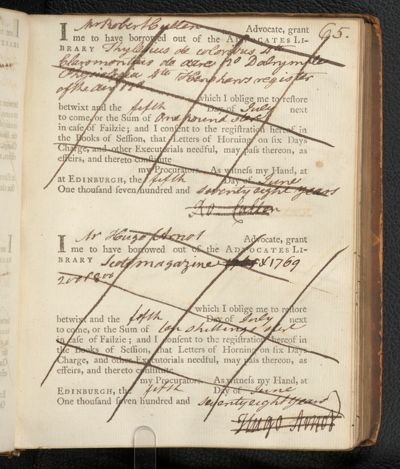 95.
I Mr Robert Cullen Advocate, grant
me to have borrowed out of the ADVOCATES LI-
BRARY Thylesius de coloribus 4to
Claromontius de aere 4o Dalrymple
Physiologia 8vo Kenshaws register
of the air
betwixt and the fifth which I oblige me to restore
Day of July next
to come, or the Sum of One pound Sterl
in case of Failzie; and I consent to the registration hereof in
the Books of Session, that Letters of Horning on six Days
Charge, and other Executorials needful, may pass thereon, as
effeirs, and thereto constitute
my Procurators. As witness my Hand, at
at EDINBURGH, the fifth Day of June
One thousand seven hundred and seventy eight years
Ro Cullen
I Mr Hugo Arnot Advocate, grant
me to have borrowed out of the ADVOCATES LI-
BRARY Scots magazine & 1769
2 vols 8vo
which I oblige me to restore
betwixt and the fifth Day of July next
to come, or the Sum of ten shillings sterl
in case of Failzie; and I consent to the registration hereof in
the Books of Session, that Letters of Horning on six Days
Charge, and other Executorials needful, may pass thereon, as
effeirs, and thereto constitute
my Procurators. As witness my Hand, at
EDINBURGH, the fifth Day of June
One thousand seven hundred and seventy eight years
Hugo Arnot